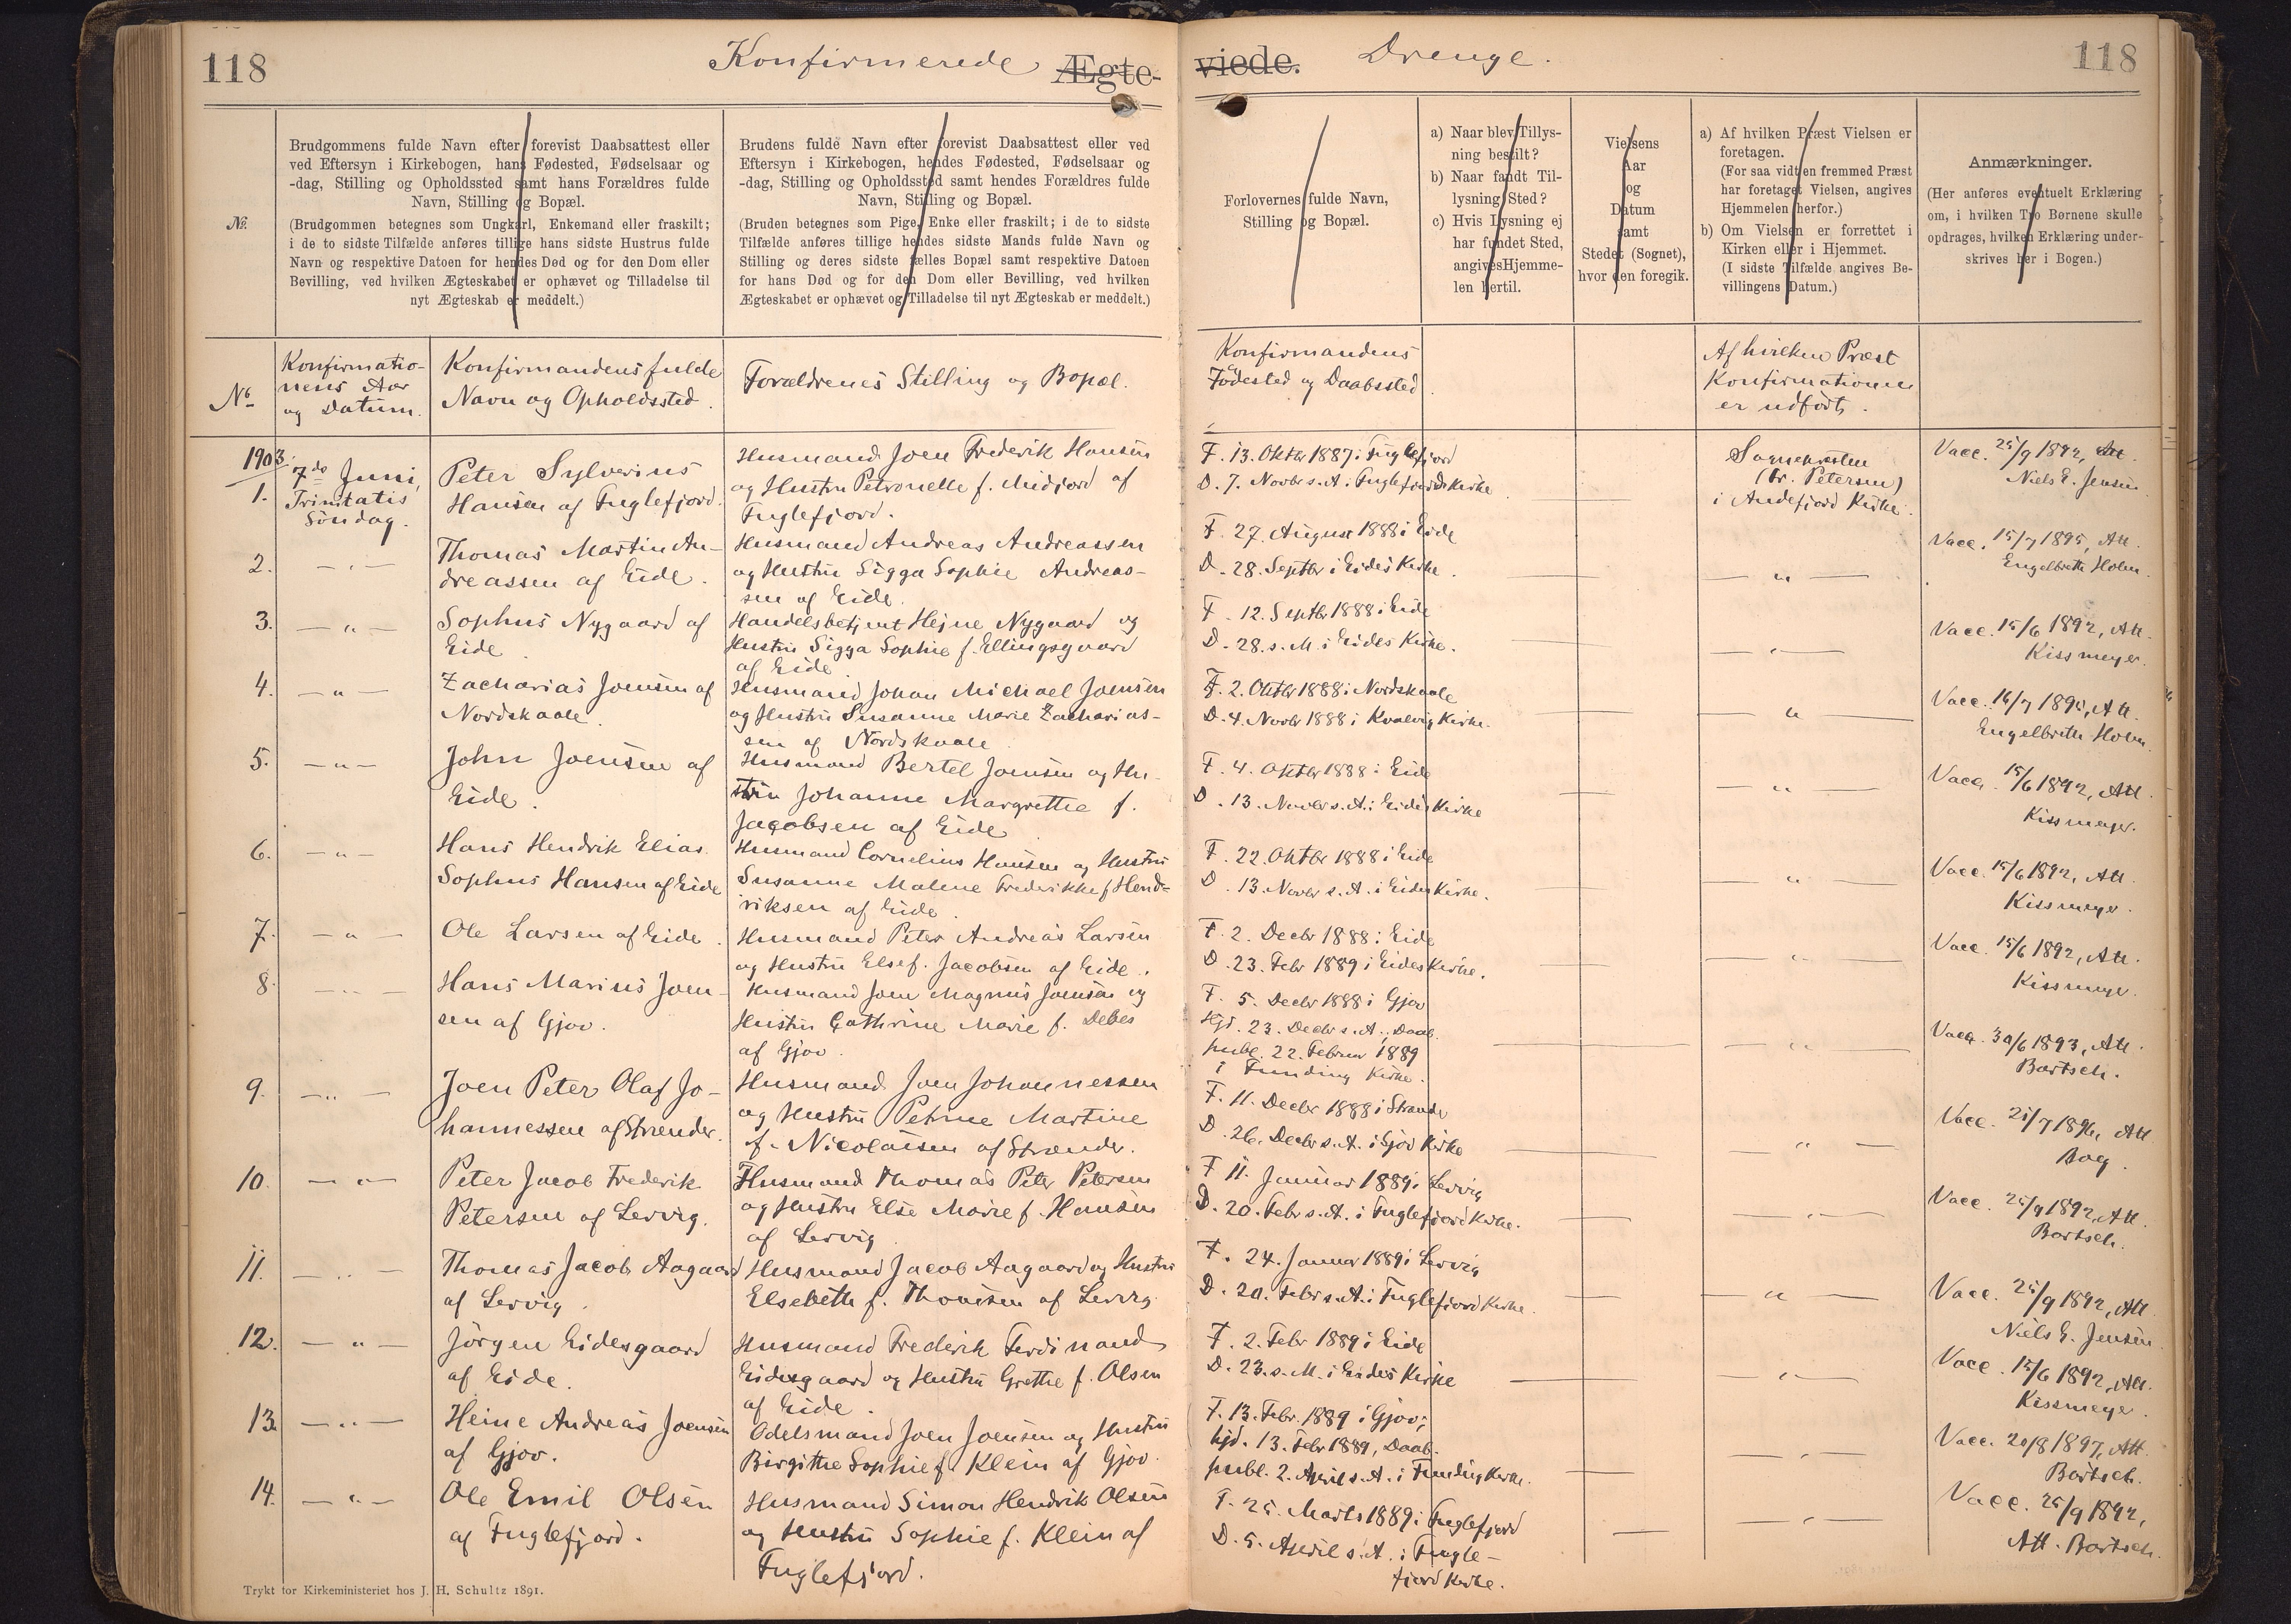 118
Konfirmerede Ægte-
Brudgommens fulde Navn efter forevist Daabsattest eller
ved Eftersyn i Kirkebogen, hans Fødested, Fødselsaar og
-dag, Stilling og Opholdssted samt hans Forældres fulde
Navn, Stilling og Bopæl.
(Brudgommen betegnes som Ungkarl, Enkemand eller fraskilt;
i de to sidste Tilfælde anføres tillige hans sidste Hustrus fulde
Navn og respektive Datoen for hendes Død og for den Dom eller
Bevilling, ved hvilken Ægteskabet er ophævet og Tilladelse til
nyt Ægteskab er meddelt.)
Brudens fulde Navn efter forevist Daabsattest eller ved
Eftersyn i Kirkebogen, hendes Fødested, Fødselsaar og
-dag, Stilling og Opholdssted samt hendes Forældres fulde
Navn, Stilling og Bopæl.
(Bruden betegnes som Pige, Enke eller fraskilt; i de to sidste
Tilfælde anføres tillige hendes sidste Mands fulde Navn og
Stilling og deres sidste fælles Bopæl samt respektive Datoen
for hans Død og for den Dom eller Bevilling, ved hvilken
Ægteskabet er ophævet og Tilladelse til nyt Ægteskab er meddelt.)
№
No
Konfirmatio-
nens Aar
og Datum.
Konfirmandens fulde
Navn og Opholdssted.
Forældrenes Stilling og Bopæl.
1903.
1.
7de Juni,
Trinitatis
Söndag.
Peter Sylverius
Hansen af Fuglefjord.
Husmand Joen Frederik Hansen
og Hustru Petronelle f. Midjord af
Fuglefjord.
2. — " —
Thomas Martin An-
dreassen af Eide.
Husmand Andreas Andreassen
og Hustru Sigga Sophie Andreas-
sen af Eide.
3. — " —
Sophus Nygaard af
Eide.
Handelsbetjent Hejne Nygaard og
Hustru Sigga Sophie f. Ellingsgaard
af Eide
4. — " —
Zacharias Joensen af
Nordskaale.
Husmand Johan Michael Joensen
og Hustru Susanne Marie Zacharias-
sen af Nordskaale
5. — " —
John Joensen af
Eide.
Husmand Bertel Joensen og Hu-
strü Johanne Margrethe f.
Jacobsen af Eide
6. — " —
Hans Hendrik Elias
Sophus Hansen af Eide
Husmand Cornelius Hansen og Hustru
Susanne Malene Frederikke f Hend-
riksen af Eide.
7. — " —
Ole Larsen af Eide.
Husmand Peter Andreas Larsen
og Hustru Else f. Jacobsen af Eide.
8. — " —
Hans Marius Joen-
sen af Gjov.
Husmand Joen Magnus Joensen og
Hustru Cathrine Marie f. Debes
af Gjov.
9. — " —
Joen Peter Olaf Jo-
hannessen af Strænder.
Husmand Joen Johannessen
og Hustru Petrine Martine
f. Nicolaisen af Strænder.
10. — " —
Peter Jacob Frederik
Petersen af Lervig.
Husmand Thomas Peter Petersen
og Hustru Else Marie f. Hansen
af Lervig
11. — " —
Thomas Jacob Aagaard
af Lervig.
Husmand Jacob Aagaard og Hustru
Elsebeth f. Thomsen af Lervig
12. — " —
Jörgen Eidesgaard
af Eide.
Husmand Frederik Ferdinand
Eidesgaard og Hustru Grethe f. Olsen
af Eide.
13. — " —
Heine Andreas Joensen
af Gjov.
Odelsmand Joen Joensen og Hustru
Birgithe Sophie f. Klein af Gjov.
14. — " —
Ole Emil Olsen
af Fuglefjord.
Husmand Simon Hendrik Olsen
og Hustru Sophie f. Klein af
Fuglefjord.
Trykt for Kirkeministeriet hos J. H. Schultz 1891.
viede. Drenge.
118
Forlovernes fulde Navn,
Stilling og Bopæl.
a) Naar blev Tillys-
ning bestilt?
b) Naar fandt Til-
lysning Sted?
c) Hvis Lysning ej
har fundet Sted,
angives Hjemme-
len hertil.
Vielsens
Aar
og
Datum
samt
Stedet (Sognet),
hvor den foregik.
a) Af hvilken Præst Vielsen er
foretagen.
(For saa vidt en fremmed Præst
har foretaget Vielsen, angives
Hjemmelen herfor.)
b) Om Vielsen er forrettet i
Kirken eller i Hjemmet.
(I sidste Tilfælde angives Be-
villingens Datum.)
Anmærkninger.
(Her anføres eventuelt Erklæring
om, i hvilken Tro Børnene skulle
opdrages, hvilken Erklæring under-
skrives her i Bogen.)
Konfirmandens
Födested og Daabssted.
Af hvilken Præst
Konfirmationen
er udfört.
F. 13. Oktbr 1887 i Fuglefjord
D. 7. Novbr s. A. i Fuglefjords Kirke
Sognepræsten
(Er. Petersen)
i Andefjord Kirke.
Vacc. 25/9 1892, Att.
Niels E. Jensen
F. 27. August 1888 i Eide
D. 28. Septbr i Eides Kirke.
— " —
Vacc. 15/7 1895, Att.
Engelbreth Holm.
F. 12. Septbr 1888 i Eide
D. 28. s. M. i Eides Kirke.
— " —
Vacc. 15/6 1892, Att.
Kissmeyer.
F. 2. Oktbr 1888 i Nordskaale
D. 4. Novbr 1888 i Kvalvig Kirke.
— " —
Vacc. 16/7 1895, Att.
Engelbreth Holm.
F. 4. Oktbr 1888 i Eide
D. 13. Novbr s. A. i Eides Kirke
— " —
Vacc. 15/6 1892, Att.
Kissmeyer.
F. 22. Oktbr 1888 i Eide
D. 13. Novbr s. A. i Eides Kirke.
— " —
Vacc. 15/6 1892, Att.
Kissmeyer.
F. 2. Decbr 1888 i Eide
D. 23. Febr 1889 i Eides Kirke.
— " —
Vacc. 15/6 1892, Att.
Kissmeyer.
F. 5. Decbr 1888 i Gjov
Hjd. 23. Decbr s. A., Daab.
publ. 22. Februar 1889
i Funding Kirke.
— " —
Vacc. 30/6 1893, Att.
Bartsch.
F. 11. Decbr 1888 i Strænder
D. 26. Decbr s. A. i Gjov Kirke
— " —
Vacc. 21/7 1896, Att
F. 11. Januar 1889 i Lervig
D. 20. Febr s. A. i Fuglefjord Kirke.
— " —
Vacc. 25/9 1892, Att.
Bartsch.
F. 24. Januar 1889 i Lervig
D. 20. Febr s. A. i Fuglefjord Kirke.
— " —
Vacc. 25/9 1892, Att.
Niels E. Jensen
F. 2. Febr 1889 i Eide
D. 23. s. M. i Eides Kirke
— " —
Vacc. 15/6 1892, Att.
Kissmeyer.
F. 13. Febr. 1889 i Gjov;
hjd. 13. Febr 1889, Daab.
publ. 2. April s. A. i Funding Kirke.
— " —
Vacc. 20/8 1897, Att.
Bartsch.
F. 25. Marts 1889 i Fuglefjord
D. 5. April s. A. i Fugle-
fjord Kirke.
— " —
Vacc. 25/9 1892,
Att. Bartsch.